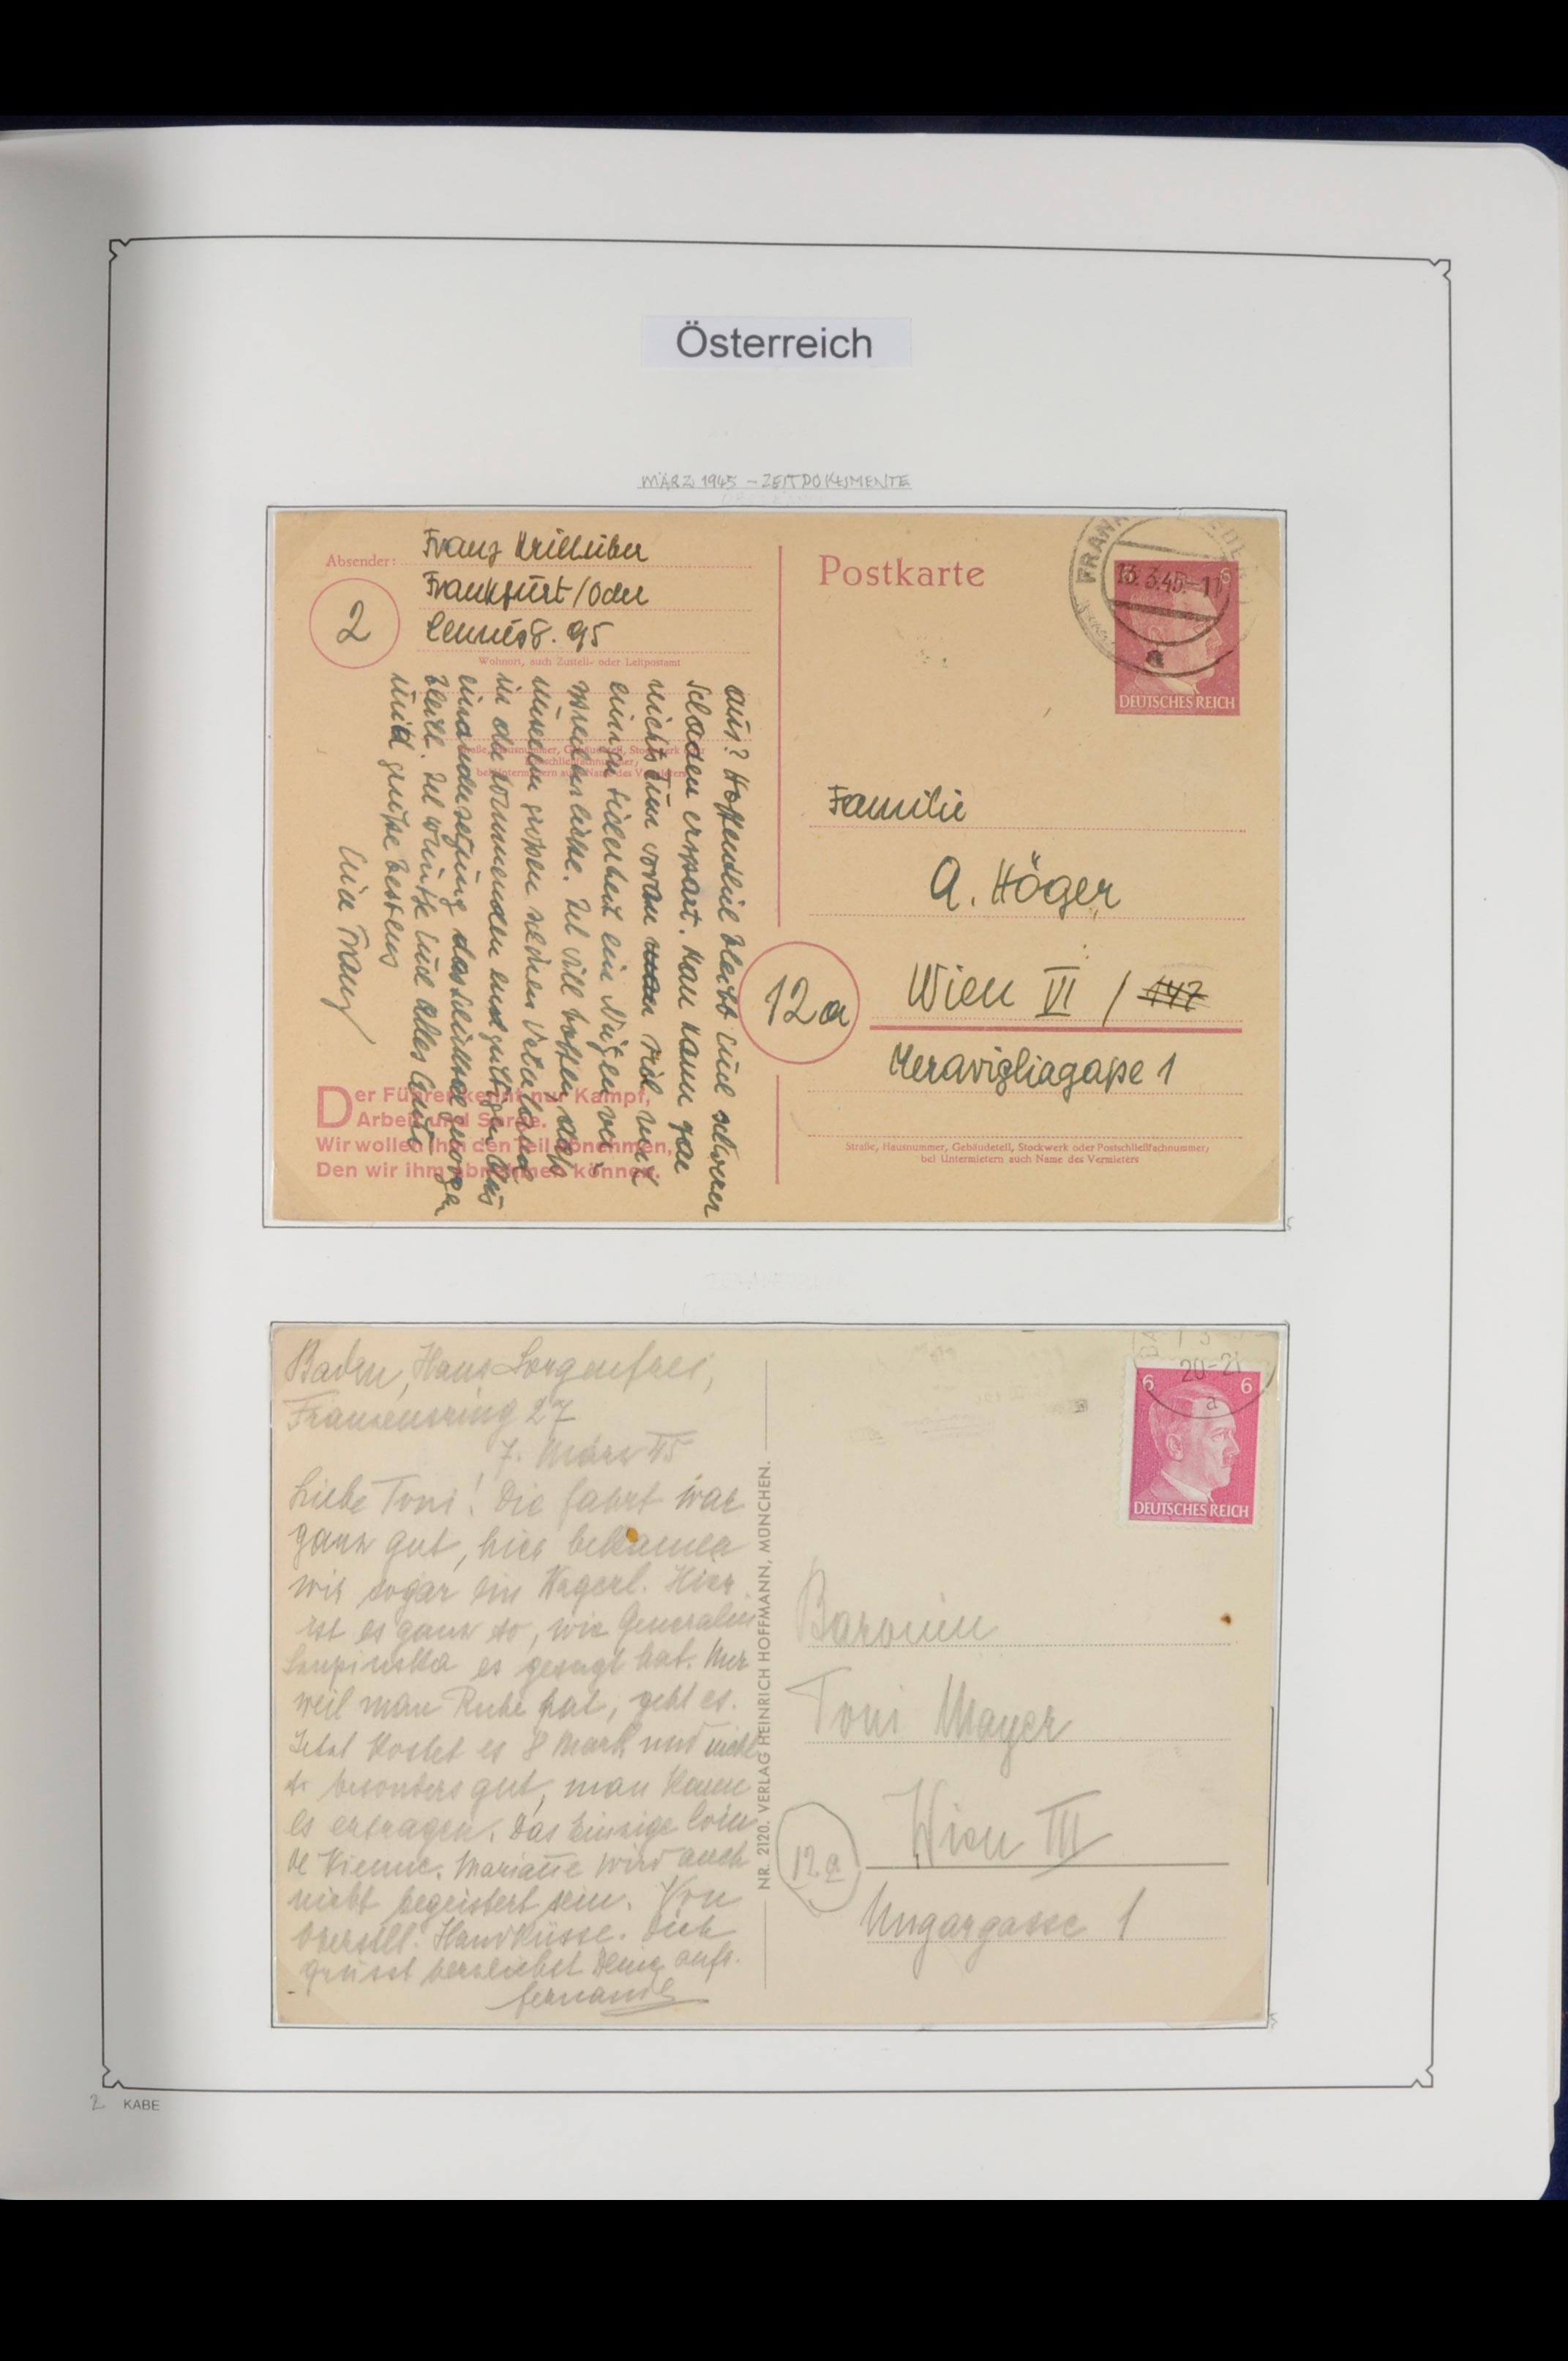 Österreich
MÄRZ 1945 – ZEITDOKUMENTE
Absender: Franz
Frankfurt/Oder
95
2
Wohnort, auch Zustell- oder Leitpostamt
Straße, Hausnummer, Gebäudeteil, Stockwerk oder
Postschließfachnummer;
bei Untermietern auch Name des Vermieters
aus? Hoffentlich bleibt Euch schwerer
Schaden erspart. Man kann gar
nichts tun woran man sich mit
einiger Sicherheit ein
Ich will hoffen, daß
unserem großen Vaterland
in der kommenden endgültigen Aus
einandersetzung das
bleibt. Ich wünsche Euch alles Gute
und grüße bestens
Euer Franz
Der Führer kennt nur Kampf,
Arbeit und Sorge.
Wir wollen ihm den Teil abnehmen,
Den wir ihm abnehmen können.
Postkarte
FRANK
13.3.45.-11
a
6
DEUTSCHES REICH
Familie
A. Höger
12a
Wien VI / 147
Meravigliagasse 1
Straße, Hausnummer, Gebäudeteil, Stockwerk oder Postschließfachnummer;
bei Untermietern auch Name des Vermieters
Baden, Haus Sorgenfrei,
27
7. März 45
Liebe Toni! Die Fahrt war
ganz gut, hier bekamen
wir sogar ein Wagerl. Hier
ist es ganz so, wie Generalin
es gesagt hat. Nur
weil man Ruhe hat, geht es.
Jetzt kostet es 8 Mark und nicht
so besonders gut, man kann
es ertragen. Das Einzige loin
de Vienne. Marianne wird auch
nicht begeistert sein. Von
Oberstlt. Handküsse. Dich
grüsst herzlichst Deine aufr.
NR. 2120. VERLAG HEINRICH HOFFMANN, MÜNCHEN.
20-21
a
6 6
DEUTSCHES REICH
Baronin
Toni Mayer
12a
Wien III
Ungargasse 1
2 KABE